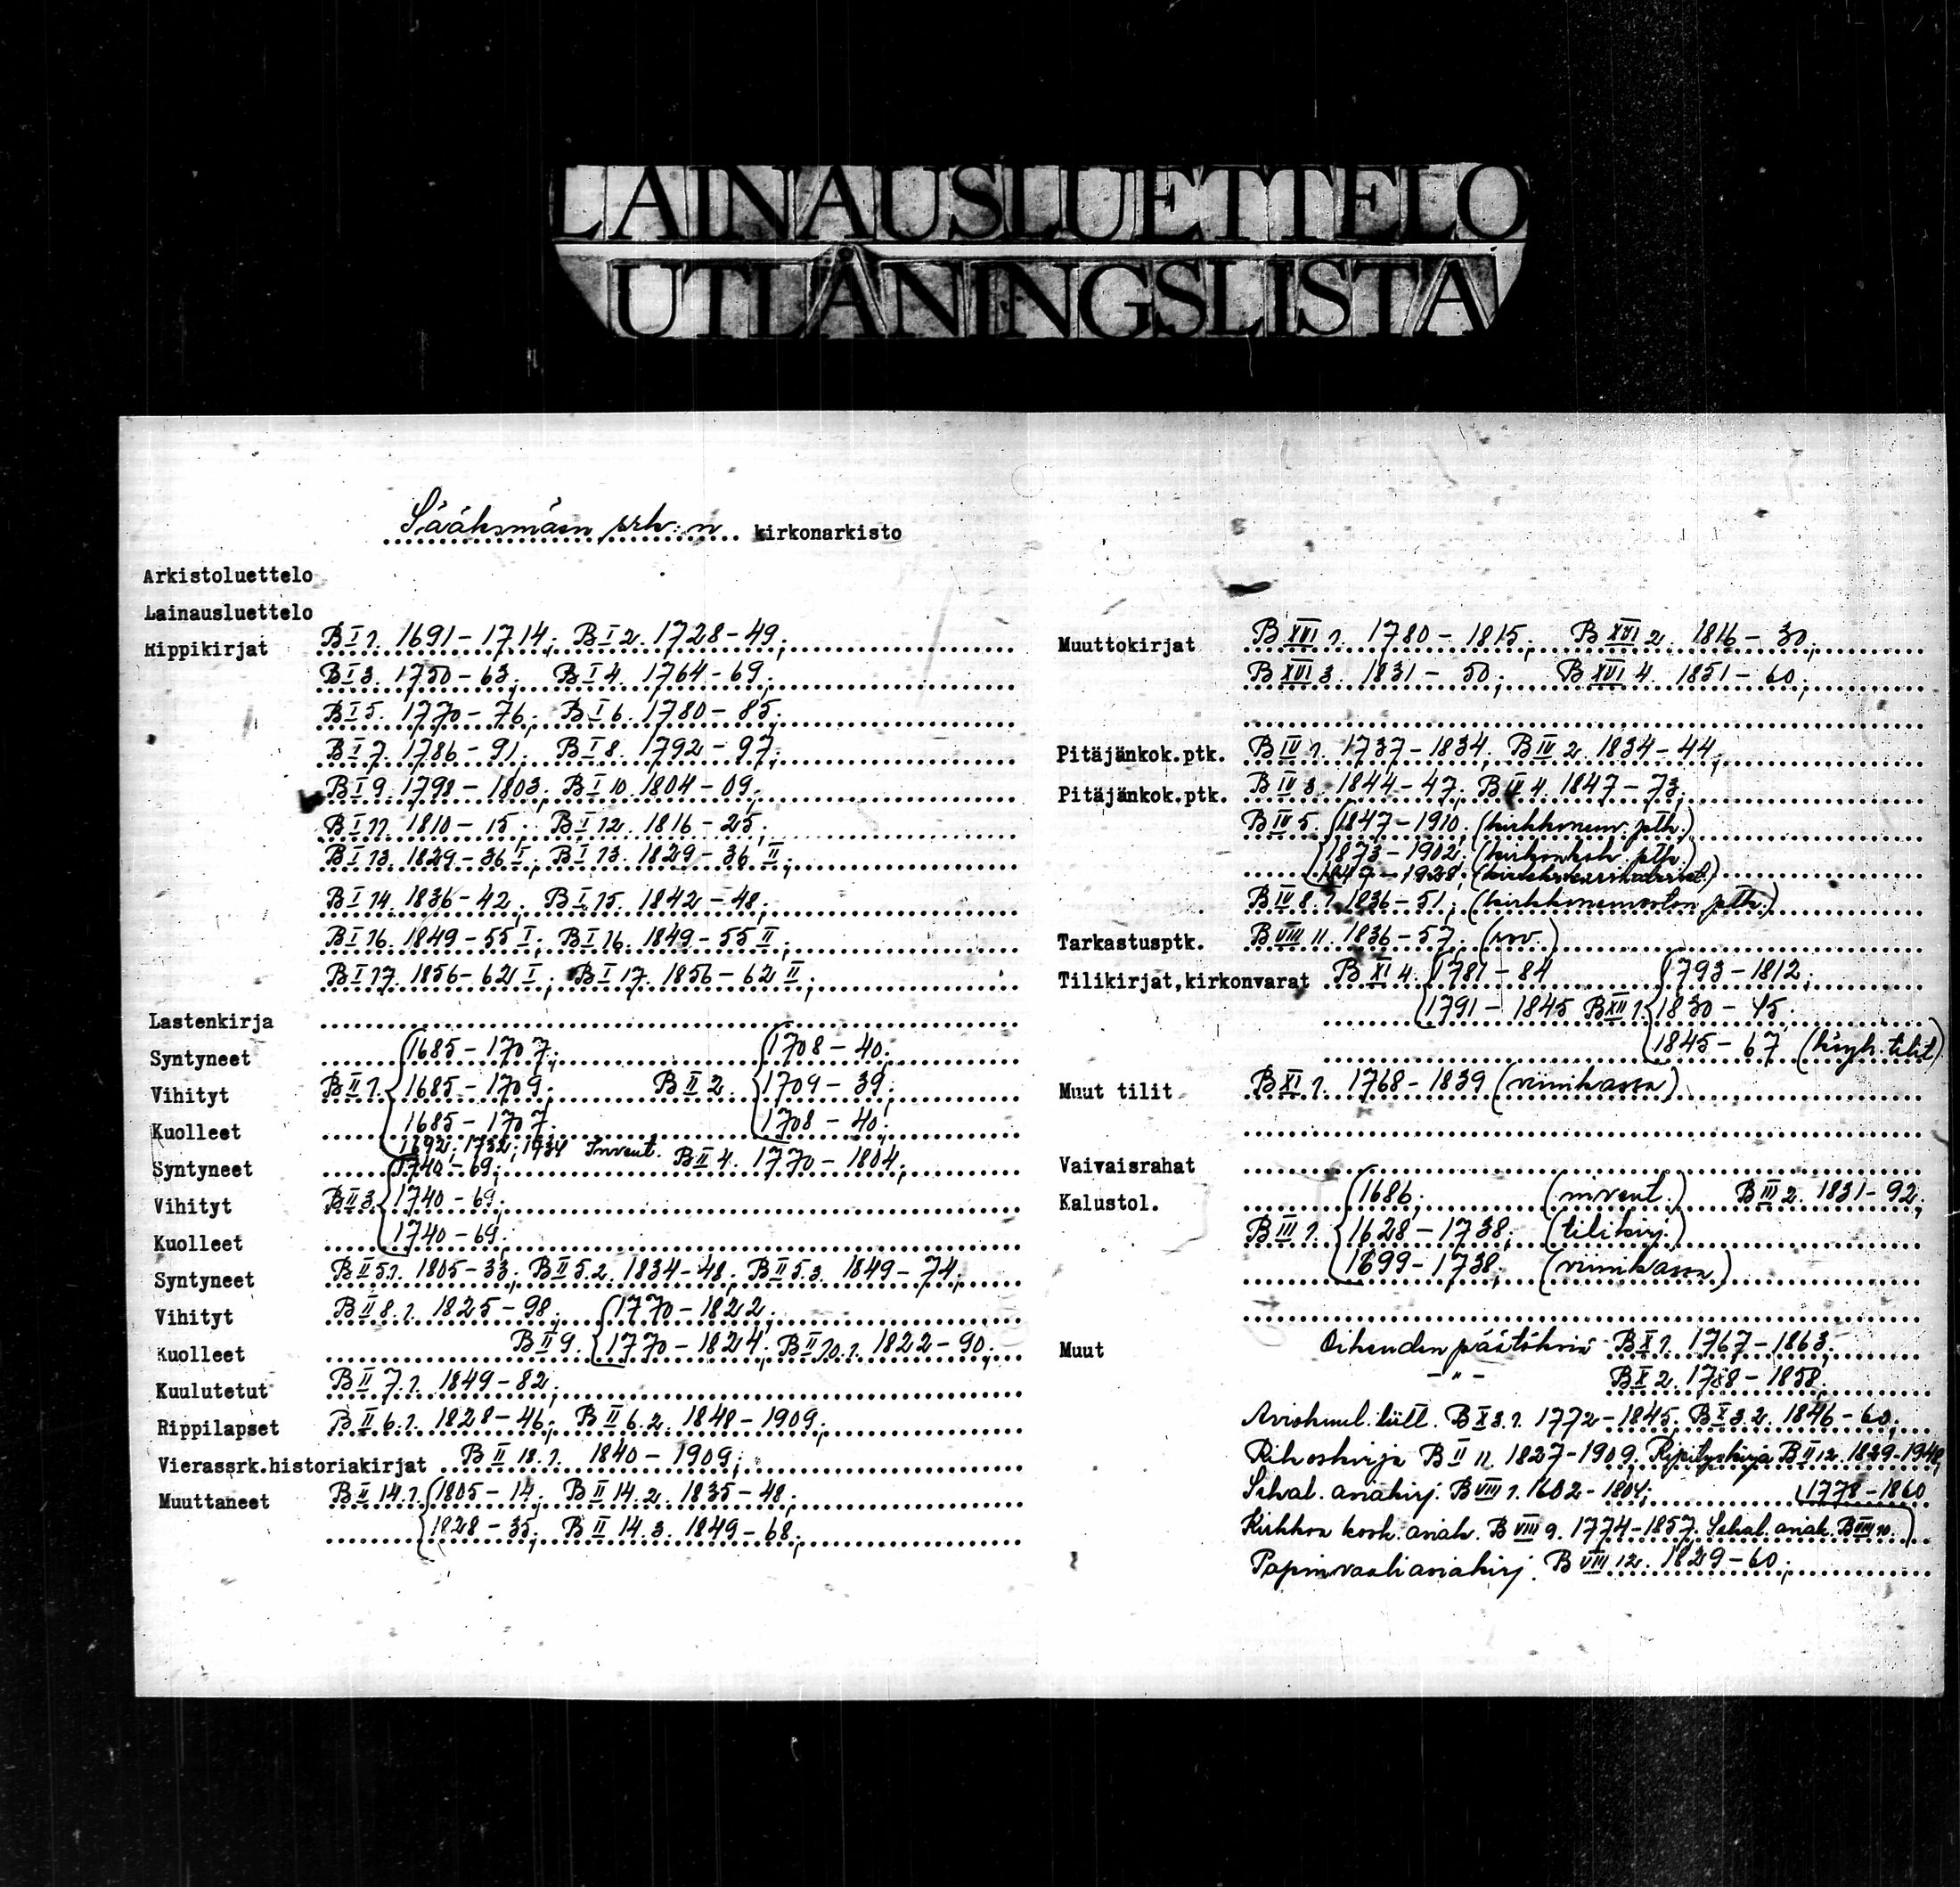 LAINAUSLUETTELO
UTLÅNINGSLISTA
Sääksmäen srk:n kirkonarkisto
Arkistoluettelo
Lainausluettelo
Rippikirjat B I 1. 1691-1714; B I 2. 1728-49;
B I 3. 1750-63; B I 4. 1764-69;
B I 5. 1770-76; B I 6. 1780-85;
B I 7. 1786-91; B I 8. 1792-97;
B I 9. 1798-1803; B I 10. 1804-09;
B I 11. 1810-15; B I 12. 1816-25;
B I 13. 1829-36 I; B I 13. 1829-36 II;
B I 14. 1836-42; B I 15. 1842-48;
B I 16. 1849-55 I; B I 16. 1849-55 II;
B I 17. 1856-62 I; B I 17. 1856-62 II;
Lastenkirja
Syntyneet 1685-1707; 1708-40;
Vihityt B II 1. 1685-1709; B II 2. 1709-39;
Kuolleet 1685-1707; 1708-40;
1692; 1732; 1734 Invent.
Syntyneet 1740-69; B II 4. 1770-1804;
Vihityt B II 3. 1740-69;
Kuolleet 1740-69;
Syntyneet B II 5.1. 1805-33; B II 5.2. 1834-48; B II 5.3. 1849-74;
Vihityt B II 8.1. 1825-98; 1770-1822;
Kuolleet B II 9. 1770-1824; B II 10.1. 1822-90;
Kuulutetut B II 7.1. 1849-82;
Rippilapset B II 6.1. 1828-46; B II 6.2. 1848-1909;
Vierassrk.historiakirjat B II 18.1. 1840-1909;
Muuttaneet B II 14.1. 1805-14; B II 14.2. 1835-48;
1828-35; B II 14.3. 1849-68;
Muuttokirjat B XVI 1. 1780-1815; B XVI 2. 1816-30;
B XVI 3. 1831-50; B XVI 4. 1851-60;
Pitäjänkok.ptk. B IV 1. 1737-1834; B IV 2. 1834-44;
Pitäjänkok.ptk. B IV 3. 1844-47; B IV 4. 1847-73;
B IV 5. 1847-1910; (kirkkoneuv. ptk.)
1873-1902; (kirkonkok. ptk.)
-1928;
B IV 8.1. 1836-51; (kirkkoneuvoston ptk.)
Tarkastusptk. B VIII 11. 1836-57; (rov.)
Tilikirjat,kirkonvarat B XI 4. 1781-84 1793-1812;
1791-1845 B XII 1. 1830-45.
1845-67 (köyh. tilit)
Muut tilit B XI 1. 1768-1839 (viinikassa)
Vaivaisrahat
Kalustol. 1686; (invent.) B III 2. 1831-92;
B III 1. 1628-1738; (tilikirj.)
1699-1738; (viinikassa)
Muut Oikeuden päätöksiä B X 1. 1767-1863;
-"- B X 2. 1788-1858;
Aviokuul. luett. B X 3.1. 1772-1845; B X 3.2. 1846-60;
Rikoskirja B II 11. 1827-1909; Ripityskirja B II 12. 1829-1948;
Sekal. asiakirj. B VIII 1. 1602-1804; 1778-1860
Kirkkoa kosk. asiak. B VIII 9. 1774-1857; Sekal. asiak. B VIII 10.
Papinvaaliasiakirj. B VIII 12. 1829-60;